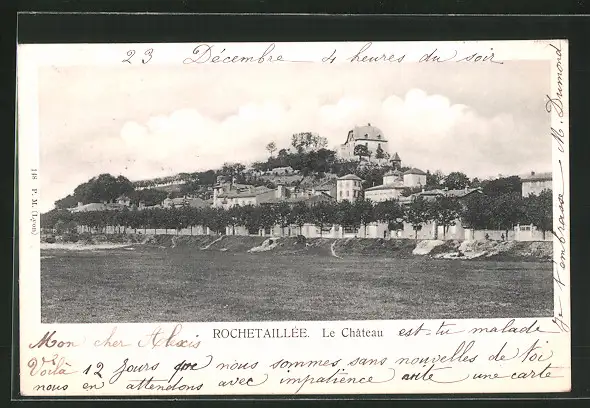 23 Décembre 4 heures du soir
148 P. M. (Lyon)
ROCHETAILLÉE. Le Château
Mon cher Alexis est-tu malade
Voilà 12 Jours que nous sommes sans nouvelles de Toi
nous en attendons avec impatience une carte
Je t'embrasse M. Dumond